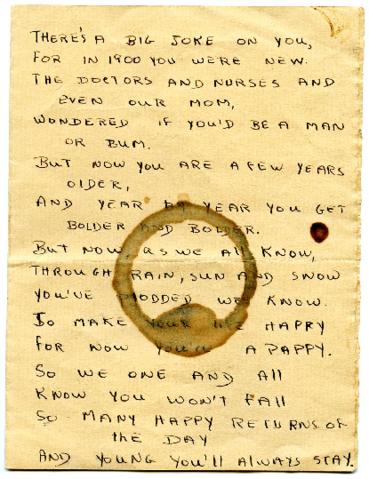 THERE'S A BIG JOKE ON YOU,
FOR IN 1900 YOU WERE NEW.
THE DOCTORS AND NURSES AND
EVEN OUR MOM,
WONDERED IF YOU'D BE A MAN
OR BUM.
BUT NOW YOU ARE A FEW YEARS
OLDER,
AND YEAR BY YEAR YOU GET
BOLDER AND BOLDER.
BUT NOW, AS WE ALL KNOW,
THROUGH RAIN, SUN AND SNOW
YOU'VE PLODDED WE KNOW.
TO MAKE YOUR LIFE HAPPY
FOR NOW A PAPPY.
SO WE ONE AND All
KNOW YOU WON'T FAll
SO MANY HAPPY RETURNS OF
tHE DAY
AND YOUNG YOU'll AlWAYS STAY.